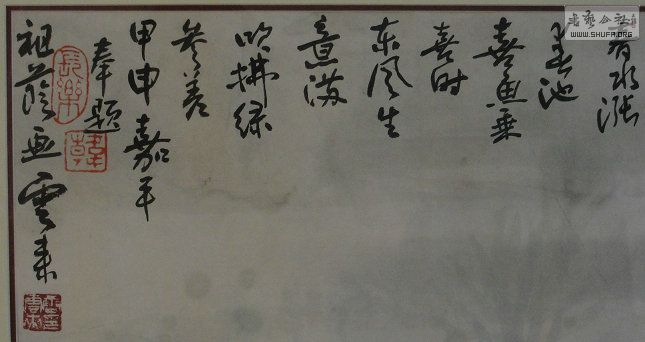 春水涨
池
喜鱼乘
喜时
东风生
意满
吹拂绿
参差
甲申嘉平
奉题
祖荫画 雲来
長樂
书艺公社
WWW.SHUFA.ORG